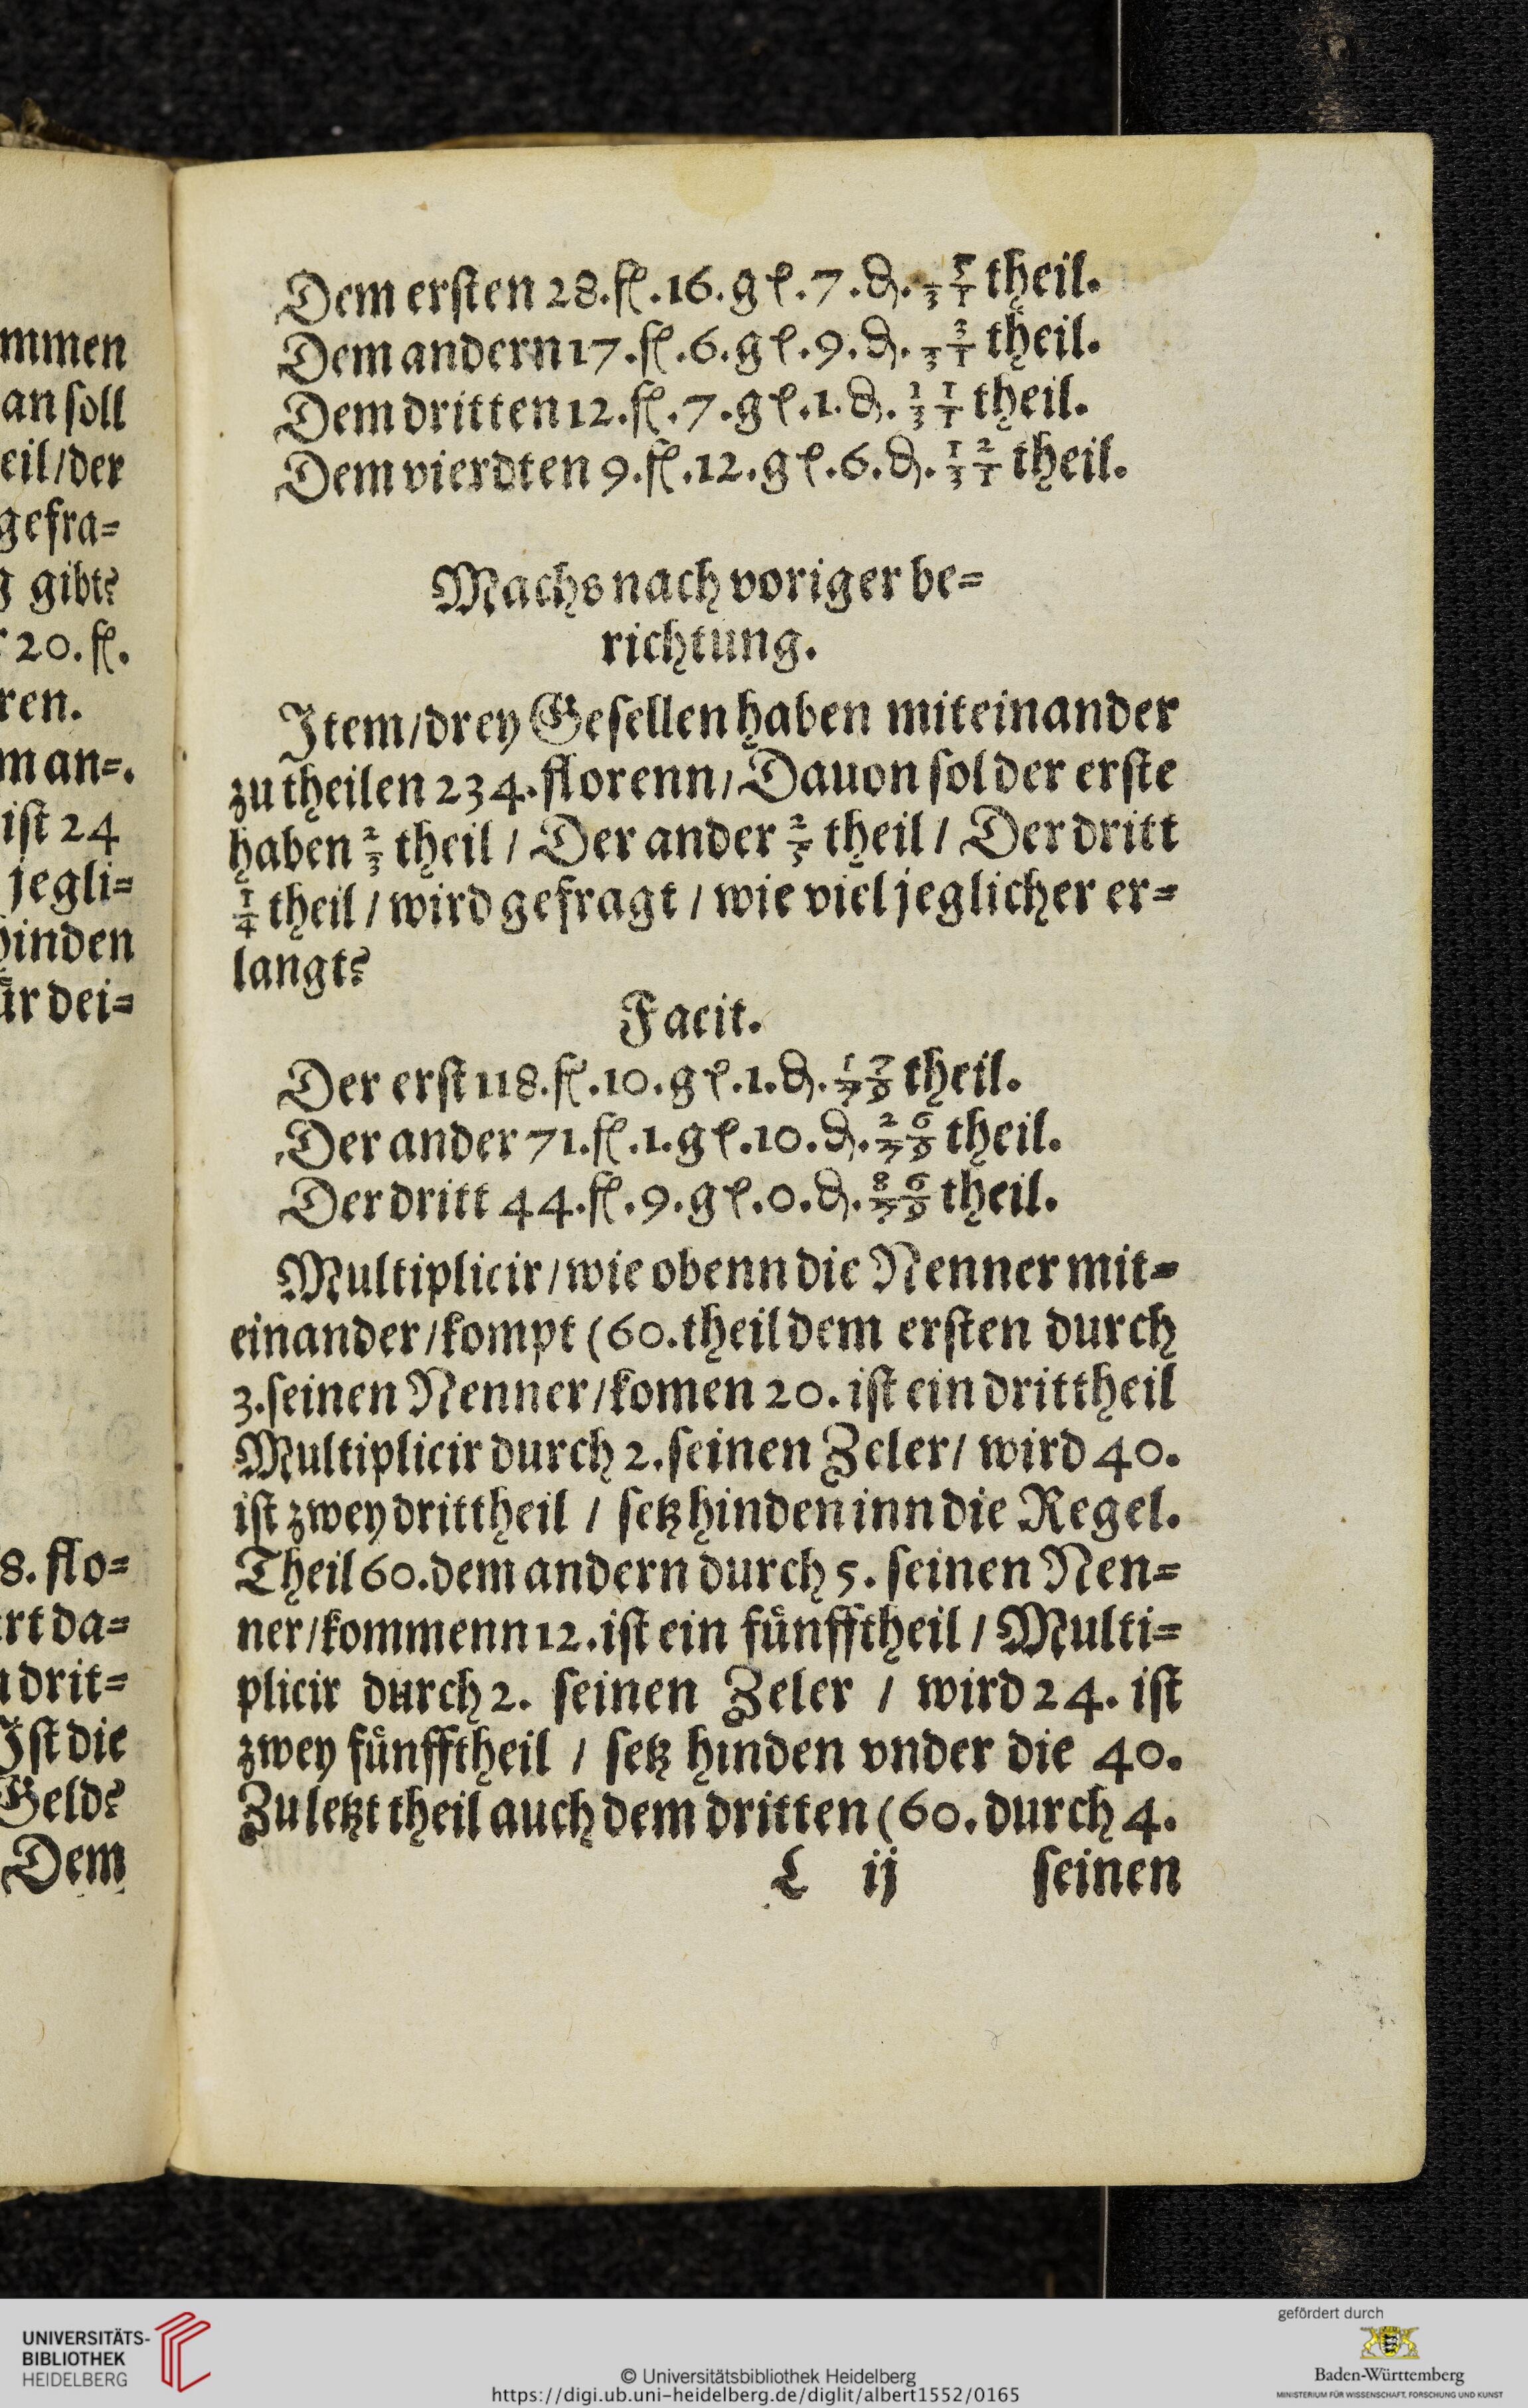 mmen
an ſoll
eil/der
gefra=
g gibt?
20. fl.
ren.
man=.
iſt 24
jegli=
hinden
ür dei=
8. flo=
rt da=
drit=
Iſt die
Geld?
Dem
Dem erſten 28. fl. 16. gl. 7. d. 5/31 theil.
Dem andern 17. fl. 6. gl. 9. d. 3/31 theil.
Dem dritten 12. fl. 7. gl. 1. d. 11/31 theil.
Dem vierdten 9. fl. 12. gl. 6. d. 12/31 theil.
Machs nach voriger be=
richtung.
Item/drey Geſellen haben miteinander
zu theilen 234. florenn/ Dauon ſol der erſte
haben 2/3 theil / Der ander 2/5 theil / Der dritt
1/4 theil / wird gefragt / wie viel jeglicher er=
langt?
Facit.
Der erſt 118. fl. 10. gl. 1. d. 17/79 theil.
Der ander 71. fl. 1. gl. 10. d. 26/79 theil.
Der dritt 44. fl. 9. gl. 0. d. 86/79 theil.
Multiplicir/wie obenn die Nenner mit=
einander/kompt (60. theil dem erſten durch
3. ſeinen Nenner/komen 20. iſt ein drittheil
Multiplicir durch 2. ſeinen Zeler/ wird 40.
iſt zwey drittheil / ſetz hinden inn die Regel.
Theil 60. dem andern durch 5. ſeinen Nen=
ner/kommenn 12. iſt ein fünfftheil / Multi=
plicir durch 2. ſeinen Zeler / wird 24. iſt
zwey fünfftheil / ſetz hinden vnder die 40.
Zu letzt theil auch dem dritten (60. durch 4.
L ij ſeinen
UNIVERSITÄTS-
BIBLIOTHEK
HEIDELBERG
© Universitätsbibliothek Heidelberg
https://digi.ub.uni-heidelberg.de/diglit/albert1552/0165
gefördert durch
Baden-Württemberg
MINISTERIUM FÜR WISSENSCHAFT, FORSCHUNG UND KUNST